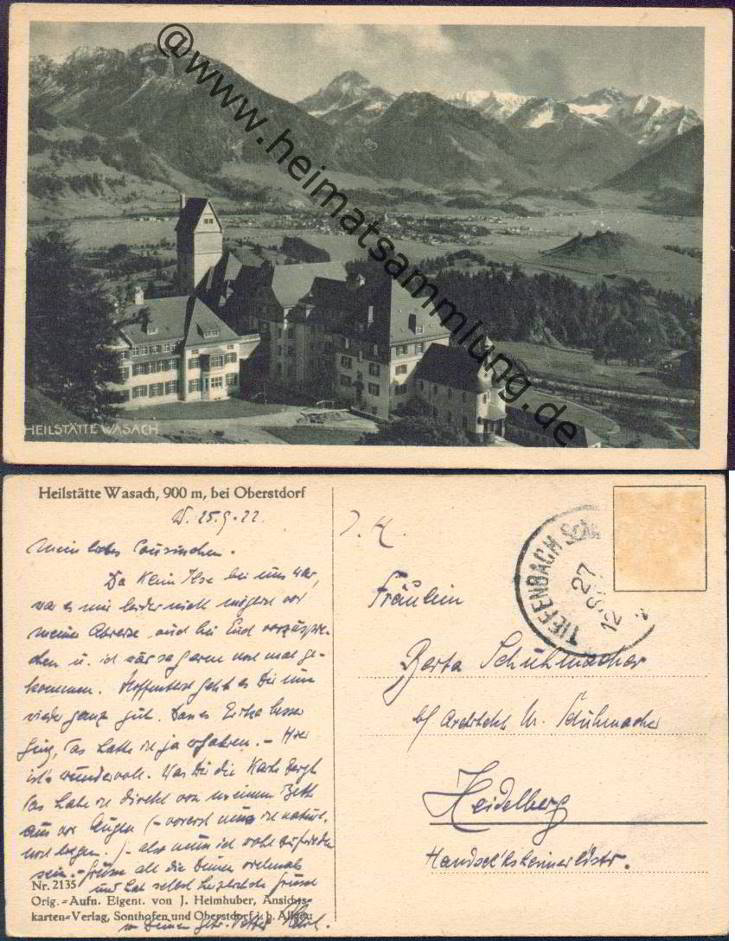 @www.heimatsammlung.de
HEILSTÄTTE WASACH
Heilstätte Wasach, 900 m, bei Oberstdorf
W. 25.9.22.
Mein liebes Cousinchen.
Da Klein Ilse bei uns war,
war es mir leider nicht möglich vor
meiner Abreise auch bei Euch
u. ich wär so gerne noch mal ge-
kommen. Hoffentlich geht es Dir nun
wieder ganz gut. Dass es besser
ging, das hatte ich ja erfahren. - Hier
ist's wundervoll. Was Dir die Karte zeigt
das habe ich direkt von meinem Bett
aus vor Augen
also muss ich wohl zufrieden
sein. - Grüsse all die Deinen
und hab selbst herzliche Grüsse
Nr. 2135
Orig.-Aufn. Eigent. von J. Heimhuber, Ansichts-
karten-Verlag, Sonthofen und Oberstdorf i. b. Allgäu
v. Deinem Vetter
TIEFENBACH
27
12
Fräulein
Berta Schuhmacher
b/ Architekt W. Schuhmacher
Heidelberg
Handschuhsheimerldstr.